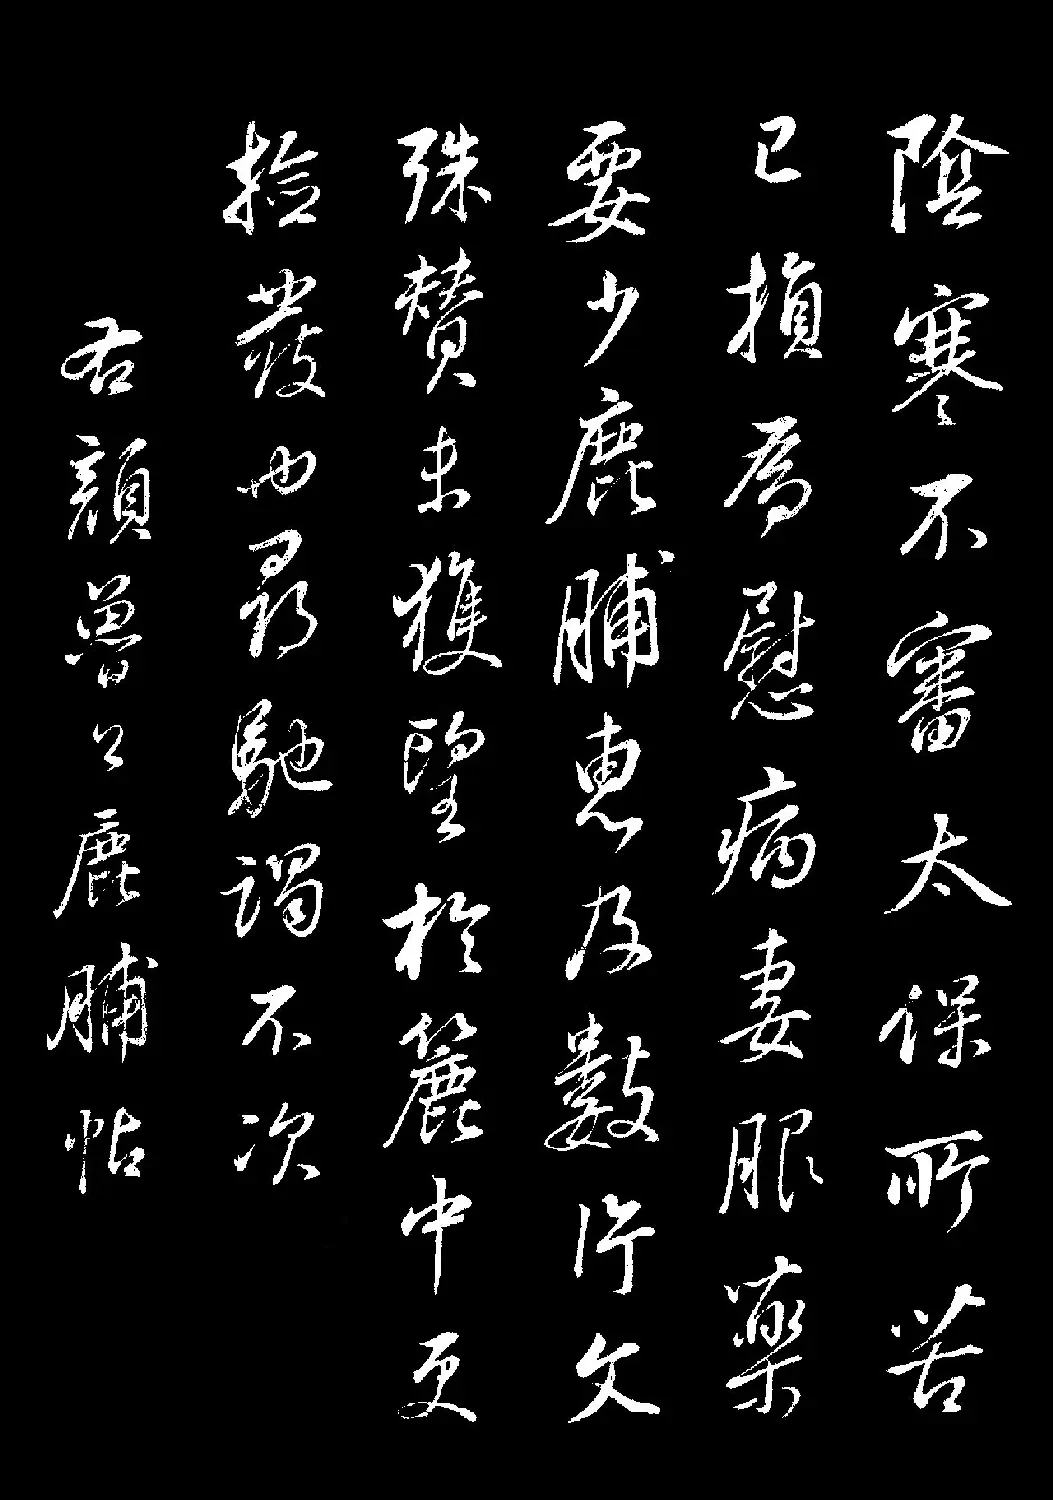 陰寒不審太保所苦
已損爲慰病妻服藥
要少鹿脯惠及數片文
殊贊未獲望於麓中更
撿發也尋馳謁不次
右顏魯公鹿脯帖